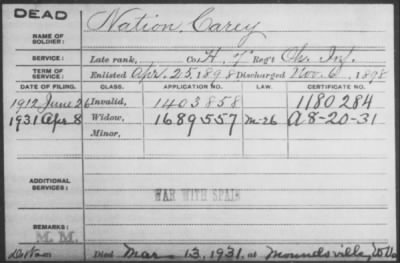 DEAD
NAME OF SOLDIER: Nation, Carey
SERVICE: Late rank, Co. H, 7" Reg't Ohio Inf.
TERM OF SERVICE: Enlisted Apr. 25, 1898 Discharged Nov. 6, 1898
DATE OF FILING. CLASS. APPLICATION NO. LAW. CERTIFICATE NO.
1912 June 26 Invalid, 1403858 1180284
1931 Apr 8 Widow, 1689557 M-26 A 8-20-31
Minor,
ADDITIONAL SERVICES:
WAR WITH SPAIN
REMARKS: M. M.
Died Mar 13, 1931, at Moundsville, W Va